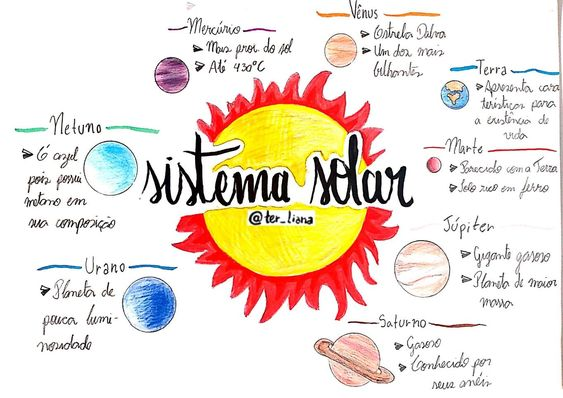 Mercúrio
➤ Mais prox. do sol
➤ Até 430°C
Vênus
➤ Estrela Dalva
➤ Um dos mais
brilhantes
Terra
➤ Apresenta cara
terísticas para
a existência de
vida
Marte
➤ Parecido com a Terra
➤ Solo rico em ferro
Júpiter
➤ Gigante gasoso
➤ Planeta de maior
massa
Saturno
➤ Gasoso
➤ Conhecido por
seus anéis
Urano
➤ Planeta de
pouca lumi-
nosidade
Netuno
➤ É azul
pois possui
metano em
sua composição
sistema solar
@ter_liana